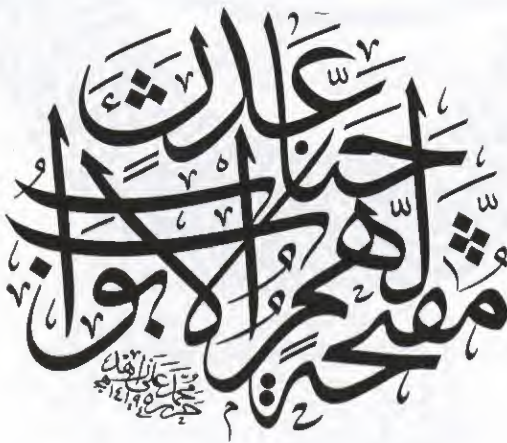 جنات عدن
مفتحة لهم الأبواب
محمد علي زاهد